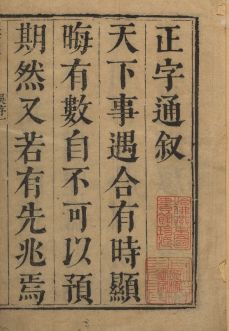 正字通叙
天下事遇合有時顯
晦有數自不可以預
期然又若有先兆焉